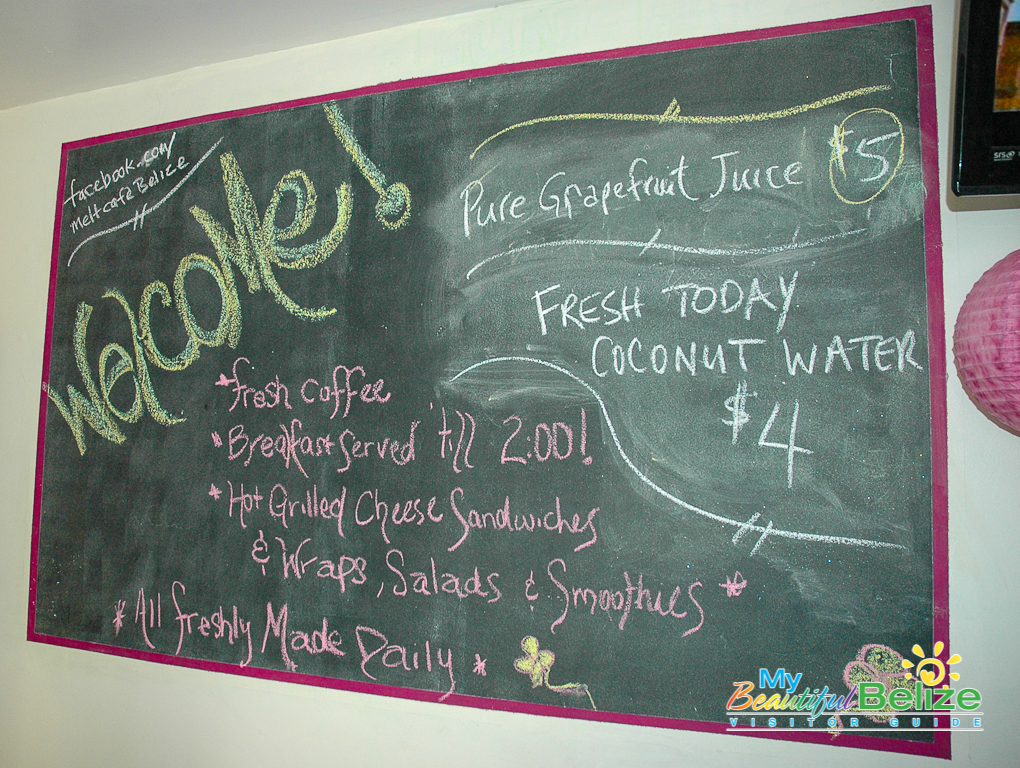 facebook.com/
meltcafeBelize
Welcome!
Pure Grapefruit Juice $5
FRESH TODAY
COCONUT WATER
$4
*fresh coffee
*Breakfast served 'till 2:00!
*Hot Grilled Cheese Sandwiches
& Wraps, Salads & Smoothies *
* All freshly Made Daily *
My
Beautiful Belize
VISITOR GUIDE